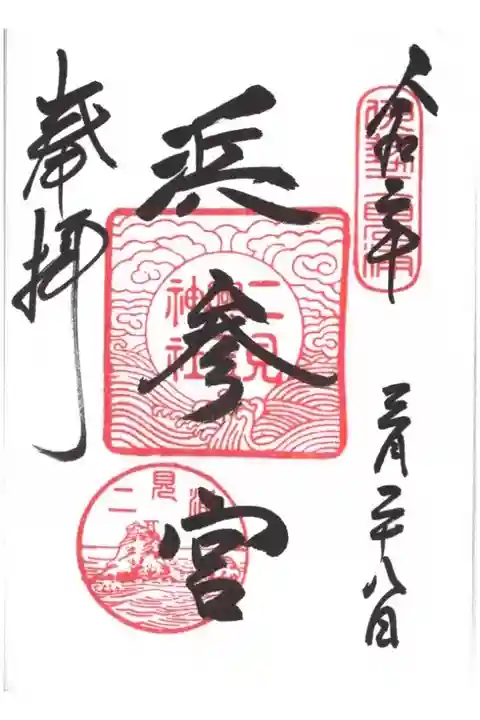 令和六年
三月二十八日
伊勢二見浦
浜参宮
二見興玉神社
二見浦
奉拝